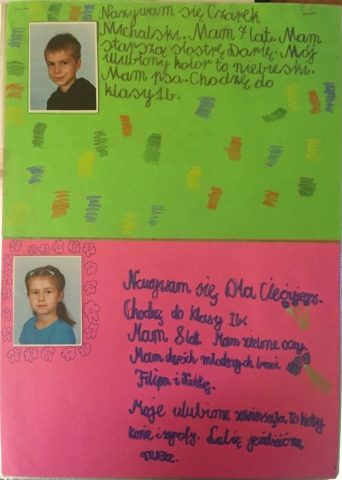 Nazywam się Czarek
Michalski. Mam 7 lat. Mam
starszą siostrę Darię. Mój
ulubiony kolor to niebieski.
Mam psa. Chodzę do
klasy 1b.
Nazywam się Ola
Chodzę do klasy 1b.
Mam 8 lat. Mam zielone oczy.
Mam dwóch młodszych braci
Filipa i
Moje ulubione zwierzęta to koty
konie i żyrafy. Lubię jeździć na